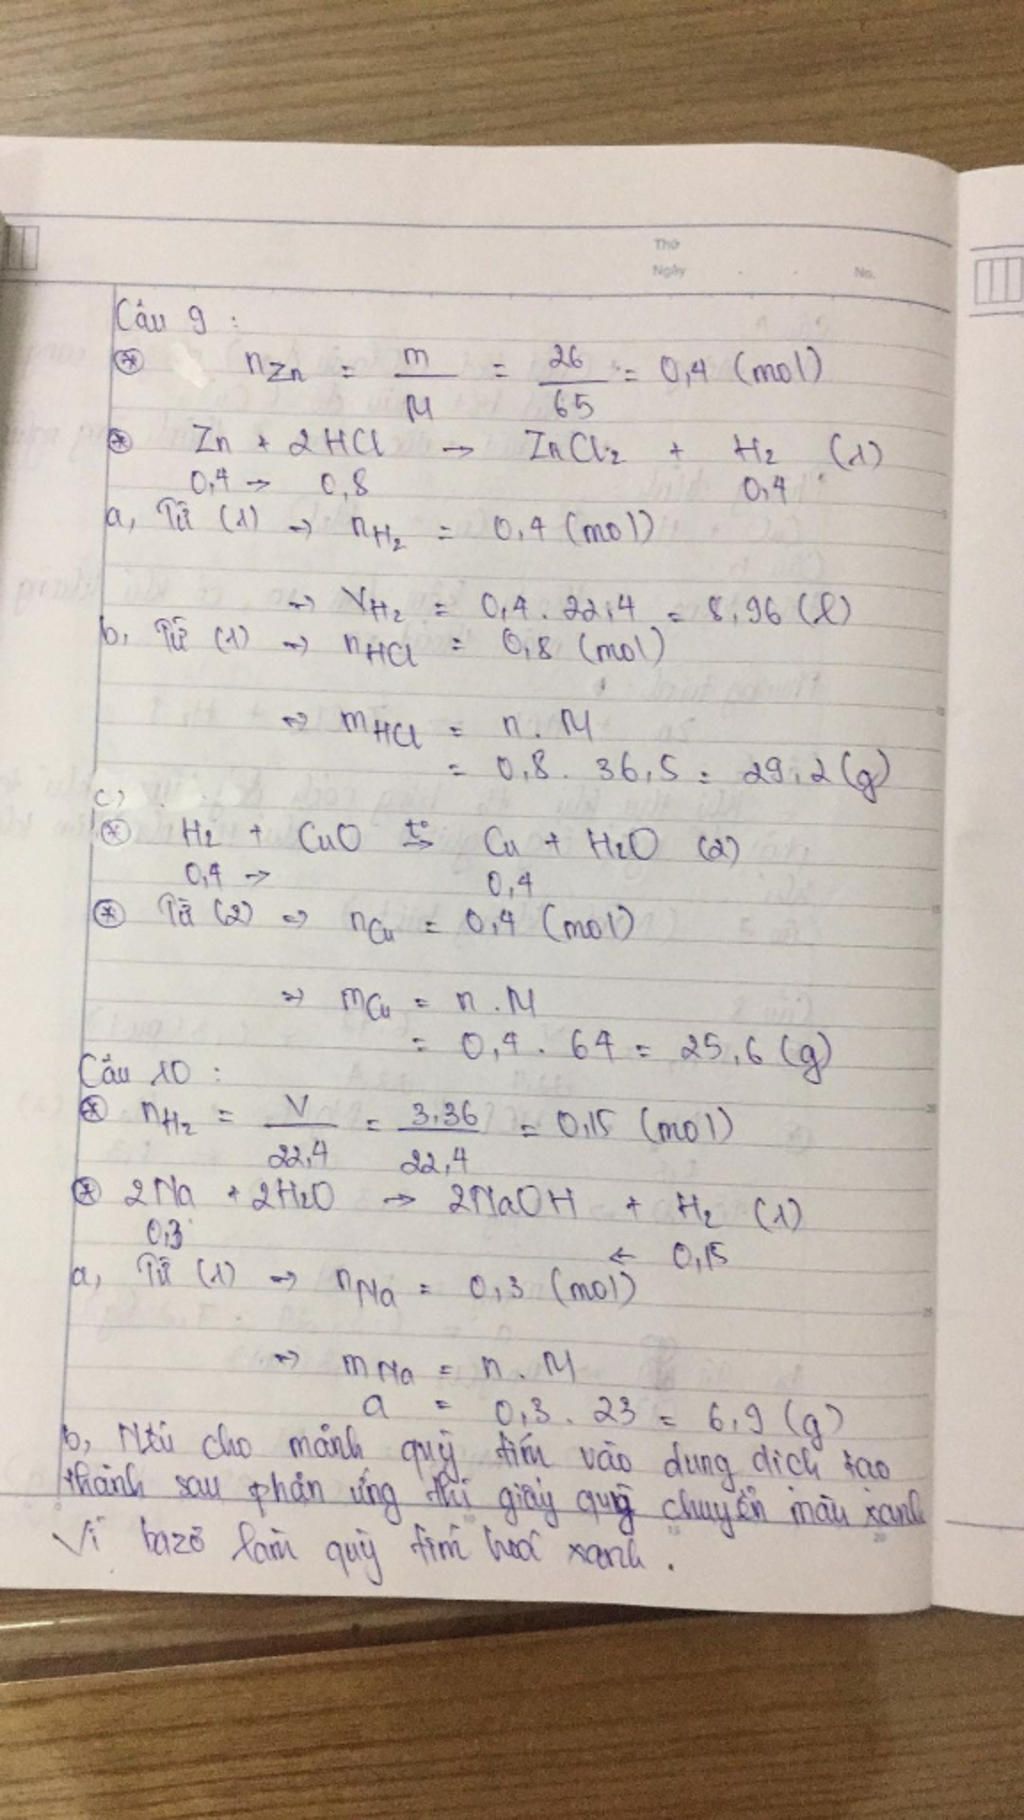 Thứ
Ngày . . No.
Câu 9 :
⊛ nZn = m/M = 26/65 = 0,4 (mol)
⊛ Zn + 2HCl → ZnCl2 + H2 (1)
0,4 → 0,8 0,4
a, Từ (1) => nH2 = 0,4 (mol)
=> VH2 = 0,4 . 22,4 = 8,96 (l)
b, Từ (1) => nHCl = 0,8 (mol)
=> mHCl = n . M
= 0,8 . 36,5 = 29,2 (g)
c)
⊛ H2 + CuO t°→ Cu + H2O (2)
0,4 → 0,4
⊛ Từ (2) => nCu = 0,4 (mol)
=> mCu = n . M
= 0,4 . 64 = 25,6 (g)
Câu 10 :
⊛ nH2 = V/22,4 = 3,36/22,4 = 0,15 (mol)
⊛ 2Na + 2H2O → 2NaOH + H2 (1)
0,3 ← 0,15
a, Từ (1) => nNa = 0,3 (mol)
=> mNa = n . M
a = 0,3 . 23 = 6,9 (g)
b, Nếu cho mảnh quỳ tím vào dung dịch tạo
thành sau phản ứng thì giấy quỳ chuyển màu xanh
Vì bazơ làm quỳ tím hoá xanh .